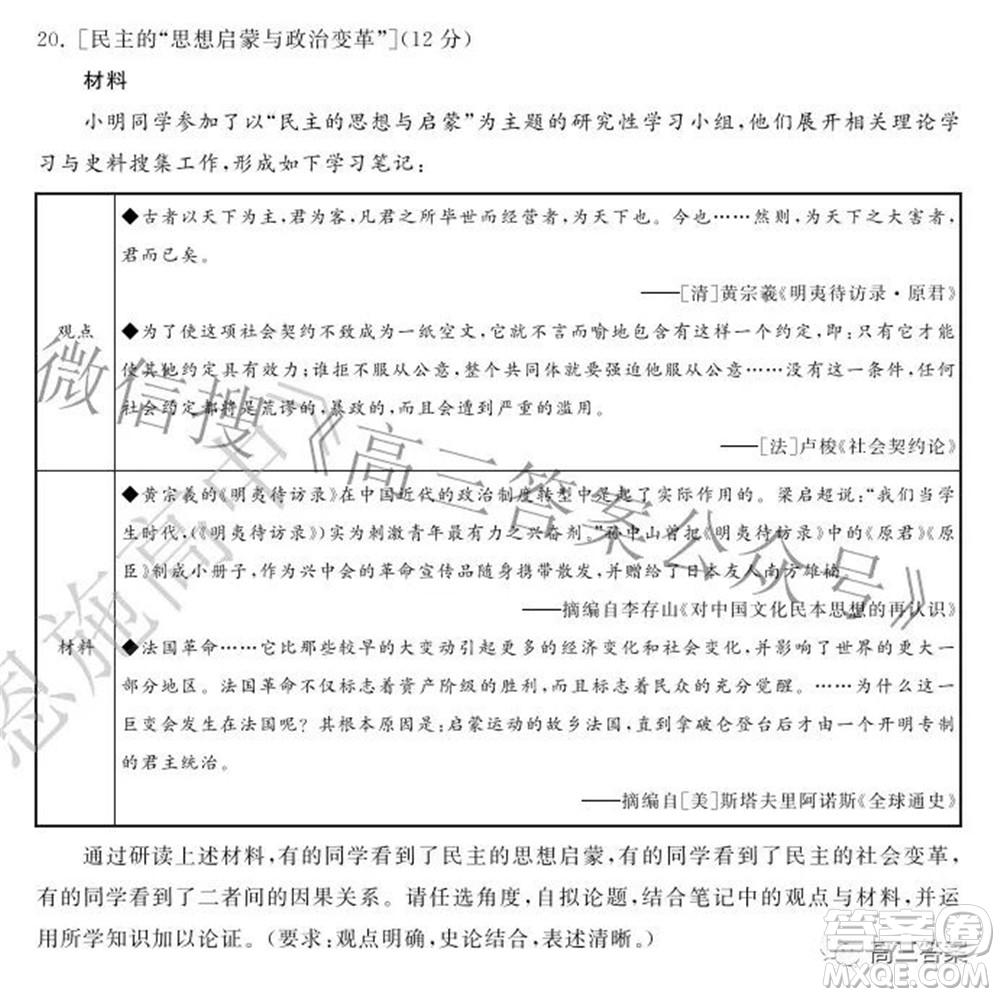 20. [民主的“思想启蒙与政治变革”](12 分)
材料
小明同学参加了以“民主的思想与启蒙”为主题的研究性学习小组,他们展开相关理论学
习与史料搜集工作,形成如下学习笔记:
观点
◆古者以天下为主,君为客,凡君之所毕世而经营者,为天下也。今也……然则,为天下之大害者,
君而已矣。
——[清]黄宗羲《明夷待访录·原君》
◆为了使这项社会契约不致成为一纸空文,它就不言而喻地包含有这样一个约定,即:只有它才能
使其他约定具有效力;谁拒不服从公意,整个共同体就要强迫他服从公意……没有这一条件,任何
社会约定都将是荒谬的,暴政的,而且会遭到严重的滥用。
——[法]卢梭《社会契约论》
材料
◆黄宗羲的《明夷待访录》在中国近代的政治制度转型中是起了实际作用的。梁启超说:“我们当学
生时代,(《明夷待访录》)实为刺激青年最有力之兴奋剂。”孙中山曾把《明夷待访录》中的《原君》《原
臣》制成小册子,作为兴中会的革命宣传品随身携带散发,并赠给了日本友人南方雄楠
——摘编自李存山《对中国文化民本思想的再认识》
◆法国革命……它比那些较早的大变动引起更多的经济变化和社会变革,并影响了世界的更大一
部分地区。法国革命不仅标志着资产阶级的胜利,而且标志着民众的充分觉醒。……为什么这一
巨变会发生在法国呢?其根本原因是:启蒙运动的故乡法国,直到拿破仑登台后才有开明专制
的君主统治。
——摘编自[美]斯塔夫里阿诺斯《全球通史》
通过研读上述材料,有的同学看到了民主的思想启蒙,有的同学看到了民主的社会变革,
有的同学看到了二者间的因果关系。请任选角度,自拟论题,结合笔记中的观点与材料,并运
用所学知识加以论证。(要求:观点明确,史论结合,表述清晰。)
微信搜《高三答案公众号》
恩施高中
答案圈
高三答案
MXQE.COM